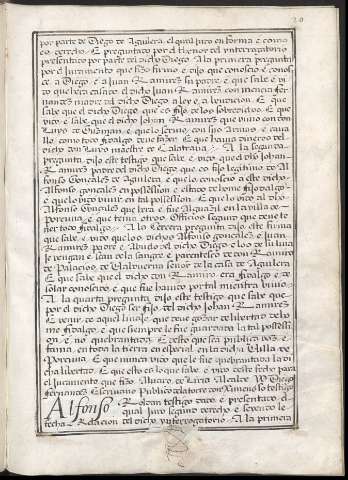 por parte de Diego de Aguilera, el qual juro en forma e como
es derecho. E preguntado por el thenor del ynterrogatorio
presentado por parte del dicho Diego. A la primera pregunta
por el Juramento que hizo firmo e dijo que conoscio e conos-
ce a Diego e a Juan Ramires su padre, e que sabe e vi-
do que hera casado el dicho Juan Ramires con mencia fer-
nandes madre del dicho Diego a ley e a bendicion. E que
sabe que el dicho Diego, que es fijo de los sobredichos. E que
vido e sabe que el dicho Johan Ramires que vivio con don
Luys de Guzman, e que lo servio con sus Armas e cava-
llo como todo fidalgo deve fazer. E que havia dineros del
dicho don Luys maestre de Calatrava. A la segunda
pregunta dijo este testigo que sabe e vido que el dicho Johan
Ramires padre del dicho Diego que es fijo legitimo de Al
fonso Gonçales de Aguilera, e que lo conoscio a este dicho
Alfonso gonçales en possession e estado de home fijodalgo
e que lo vido vivir en tal possession. E que lo vido al dicho
Alfonso Gonçales que hera e fue Alguazil en la villa de
Porcuna, e que tenia otros Officios segund que deve te-
ner todo fidalgo. A la tercera pregunta dijo este firma
que sabe e vido que los dichos Alfonso gonçales e Juan
Ramires padre e Abuelo del dicho Diego e los de su lina
je vengan e sean de la sangre e parentesco de don Ramiro
de Palacios, de Valbuena señor de la casa de Aguilera
E que sabe que el dicho don Ramiro era fidalgo e de
solar conoscido, e que fue havido por tal mientra bivio
A la quarta pregunta dijo este testigo que sabe que
por el dicho Diego ser fijo del dicho Johan Ramires
E venir de aquel linaje que deve gozar de libertad de ho
me fidalgo, e que siempre le fue guardada la tal possessi
on, e no quebrantada. E desto que es publica bos e
fama, en toda la tierra en especial en la dicha Villa de
Porcuna. E que nunca vido que le fue quebrantada la di
cha libertad. E que esto es lo que sabe, e vido deste fecho para
el Juramento que fizo. Alvaro de Lerea Alcalde. Diego
fernandes Escrivano Publico
Alfonso Roldan testigo dado e presentado el
qual juro segund derecho e seyendo le
fecha Relacion del dicho ynterrogatorio. A la primera